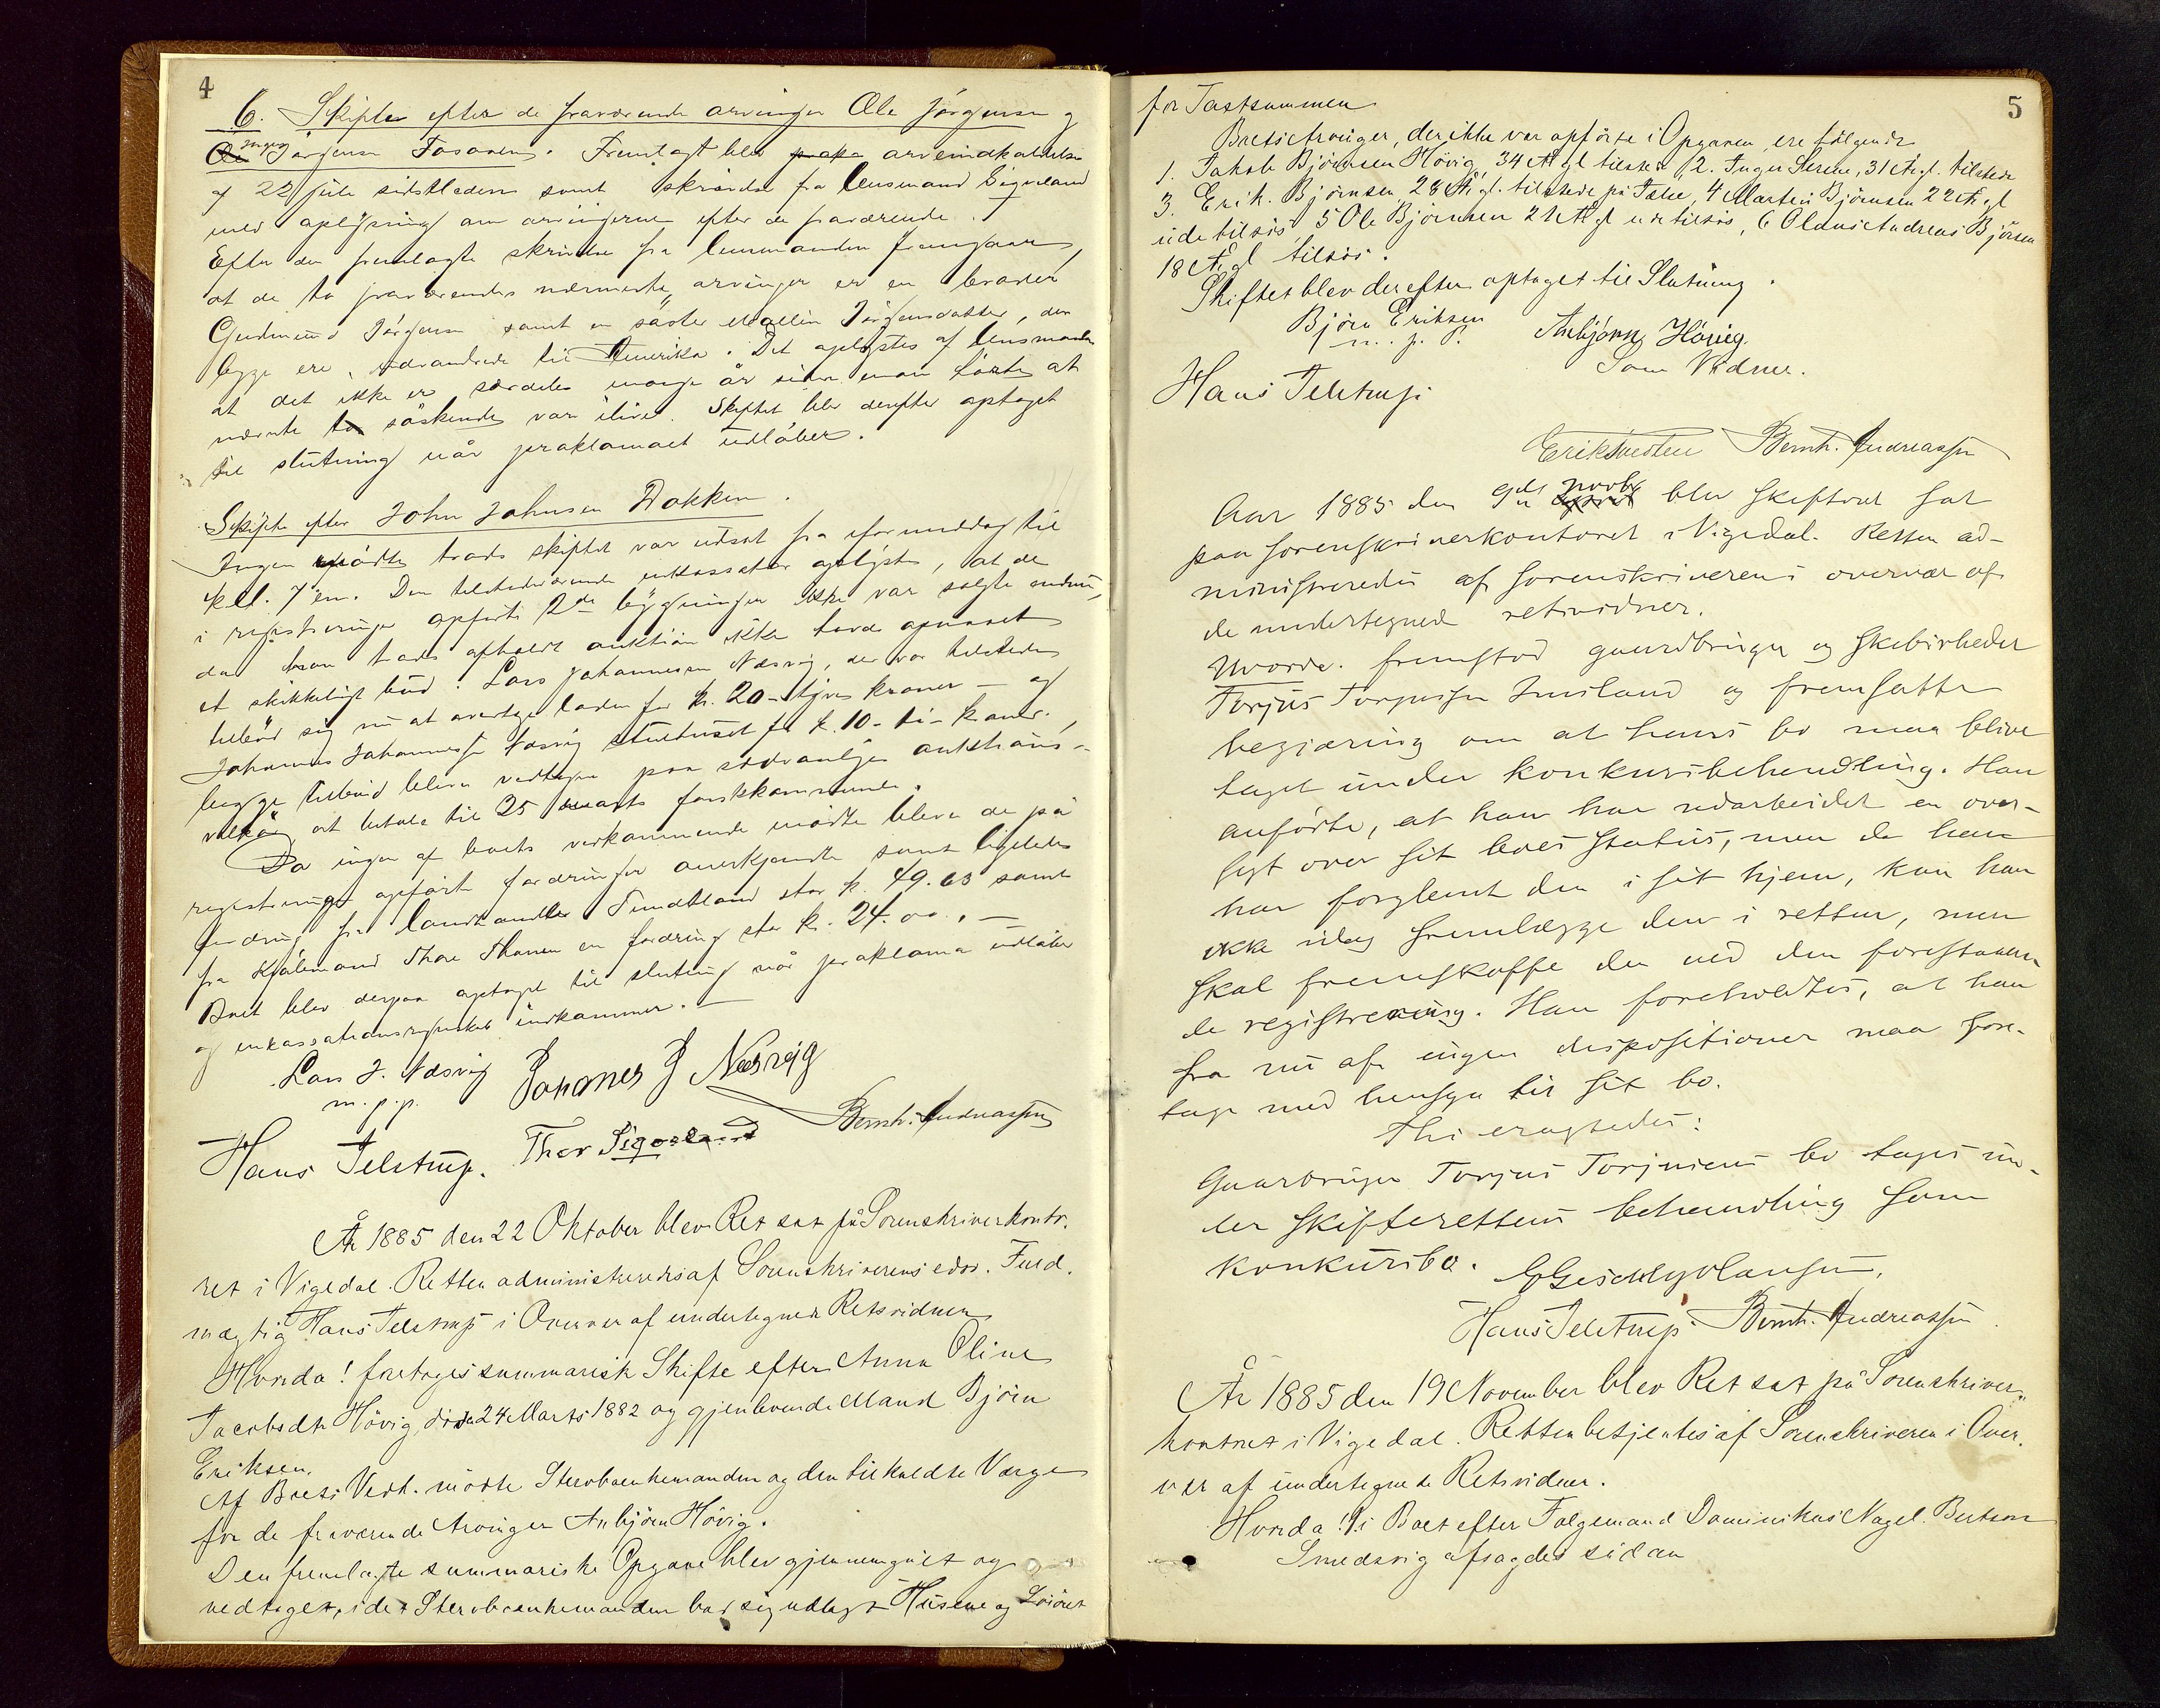 4
6. Skifte efter de fraværende arvinger Ole Jörgensen og
Jörgensen Fosaaen. Fremlagt blev arveindkaldelse
af 22 juli sidstleden samt skrivelse fra lensmand Sigveland
med oplysning om arvingerne efter de fraværende.
Efter den fremlagte skrivelse fra lensmanden fremgaar,
at de to fraværendes nærmeste arvinger er en broder
Gudmund Jörgensen samt en söster Mallin Jörgensdatter, der
begge ere udvandrede til Amerika. Det oplystes af lensmanden
at det ikke er særdeles mange år siden man hörte at
nævnte to söskende var ilive. Skiftet blev derefter optaget
til slutning når proklamaet udlöber.
Skifte efter John Johnsen Dokken.
Ingen mödte trods skiftet var udsat fra formiddag til
kl. 7 em. Den tilstedeværende inkassator oplyste, at de
i registreringen opförte 2de bygninger ikke var solgte endnu,
da man trods afholdt auktion ikke havde opnaaet
et skikkeligt bud. Lars Johannesen Næsvig, der var tilstede
tilböd sig nu at overtage laden for kr. 20 - tjve kroner - og
Johannes Johannessen Næsvig stuehuset for k. 10 - ti - kroner.,
begge tilbud bleve vedtagne paa sædvanlige auktions-
vilkår, at betale til 25 marts forstkommende.
Da ingen af boets vedkommende mödte bleve de på
registreringen opfört fordringer anerkjendte samt ligeledes
fordring fra landhandler Tundtland stor k. 49.63 samt
fra Kjöbmand Thore Thorsen en fordring stor kr. 24.00. -
Boet blev derpaa optaget til slutning når proklama udlöber
og inkassationsregnskab indkommer. -
Lars J. Næsvig Johanes J Næsvig
m. p. p.
Bernh. Andreassen
Hans Telstrup. Thor Sigveland
År 1885 den 22 Oktober blev Ret sat på Sorenskriverkonto-
ret i Vigedal. Retten administreredes af Sorenskriverens edsv. Fuld-
mægtig Hans Telstrup i Overvær af undertegnede Retsvidner
Hvorda! foretoges summarisk Skifte efter Anna Oline
Jacobsdtr Hövig död 24 Marts 1882 og gjenlevende Mand Björn
Eriksen.
Af Boets Vedk. mödte Sterbo enkemanden og den tilkaldte Værge
for de fraværende Arvinger Anbjörn Hövig.
Den fremlagte summariske Opgave blev gjennemgået og
vedtaget, idet Sterboenkemanden bad sig udlagt Husene og Lösöret
5
for Tastsummen
Boets Arvinger, der ikke var opförte i Opgaven, ere fölgende
1. Jakob Björnsen Hövig, 34 År gl tilstede 2. Inger Serine, 31 År gl. tilstede
3. Erik Björnsen, 28 År gl. tilstede på Talie, 4 Martin Björnsen 22 År gl
ude tilsös 5 Ole Björnsen 21 År gl ude tilsös, 6 Olaus Andreas Björnsen
18 År gl tilsös.
Skiftet blev derefter optaget til Slutning.
Björn Eriksen Anbjörn Hövig.
m. p. P. Som Vidne.
Hans Telstrup
Erik Bernh. Andreassen
Aar 1885 den 9de novbr blev skifteret sat
paa sorenskriverkontoret i Vigedal. Retten ad-
ministreredes af sorenskriveren i overvær af
de undertegnede retsvidner.
Hvorda. fremstod gaardbruger og skibsrheder
Torjus Torjussen Imsland og fremsatte
begjæring om at hans bo maa blive
taget under konkursbehandling. Han
anförte, at han har udarbeidet en over-
sigt over sit boes status, men da han
har forglemt den i sit hjem, kan han
ikke idag fremlægge den i retten, men
skal fremskaffe den ved den forestaaen-
de registrering. Han foreholdtes, at han
fra nu af ingen dispositioner maa fore-
tage med hensyn til sit bo.
Thi eragtedes:
Gaardbruger Torjus Torjusens bo tages un-
der skifterettens behandling som
konkursbo.
Hans Telstrup. Bernh. Andreassen
År 1885 den 19 November blev Ret sat på Sorenskriver-
kontoret i Vigedal. Retten betjentes af Sorenskriveren i Over-
vær af undertegnede Retsvidner.
Hvorda! 1. i Boet efter Folgemand Dominikus Nagel Bertsen
Smedsvig afsagdes sådan